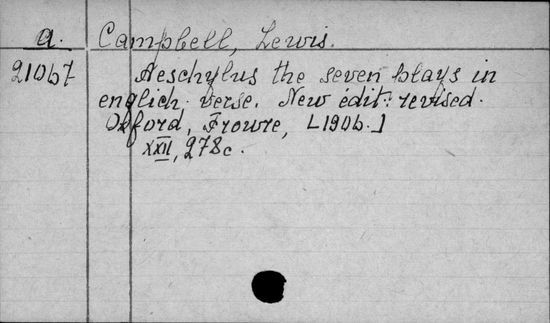 a. Campbell, Lewis.
21067 Aeschylus the seven plays in
englich verse. New edit: revised.
Oxford, Frowre, [1906.]
XXII, 278c.